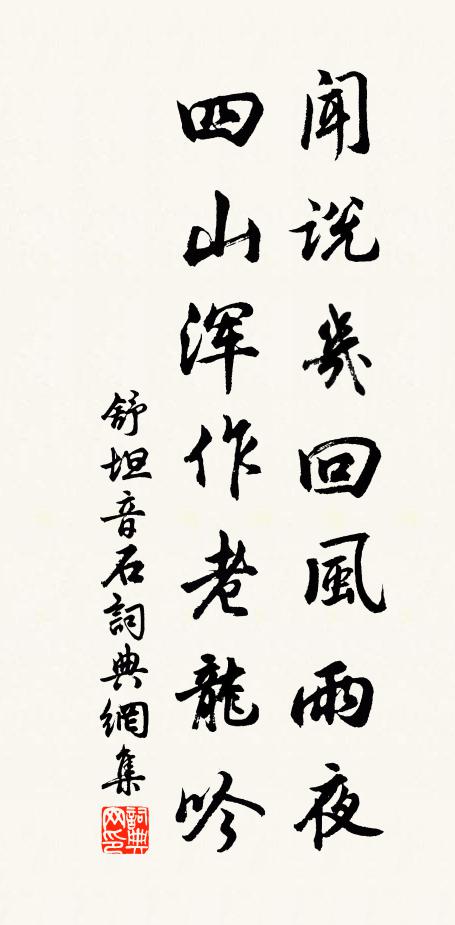 闻説幾回風雨夜
四山浑作老龍吟
舒坦音石詞典網集
詞典
网印